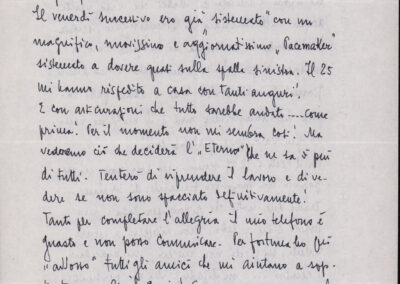 Il venerdì successivo ero già "sistemato" con un
magnifico, nuovissimo e aggiornatissimo "Pacemaker"
sistemato a dovere quasi sulla spalla sinistra. Il 25
mi hanno rispedito a casa con tanti auguri!
E con assicurazioni che tutto sarebbe andato .... come
prima! Per il momento non mi sembra così! Ma
vedremo ciò che deciderà l'"Eterno" che ne sa di più
di tutti. Tenterò di riprendere il lavoro e di ve-
dere se non sono spacciato definitivamente!
Tanto per completare l'allegria il mio telefono è
guasto e non posso comunicare. Per fortuna ho qui
"addosso" tutti gli amici che mi aiutano a sop-